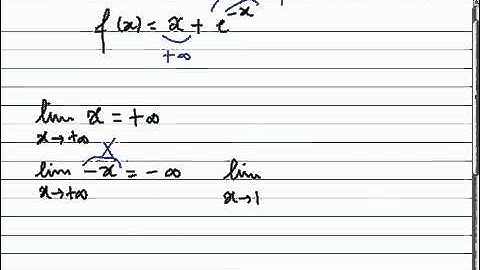 f(x) = x + e^{-x}
+∞
lim x = +∞
x→+∞
X
lim -x = -∞ lim
x→+∞ x→1